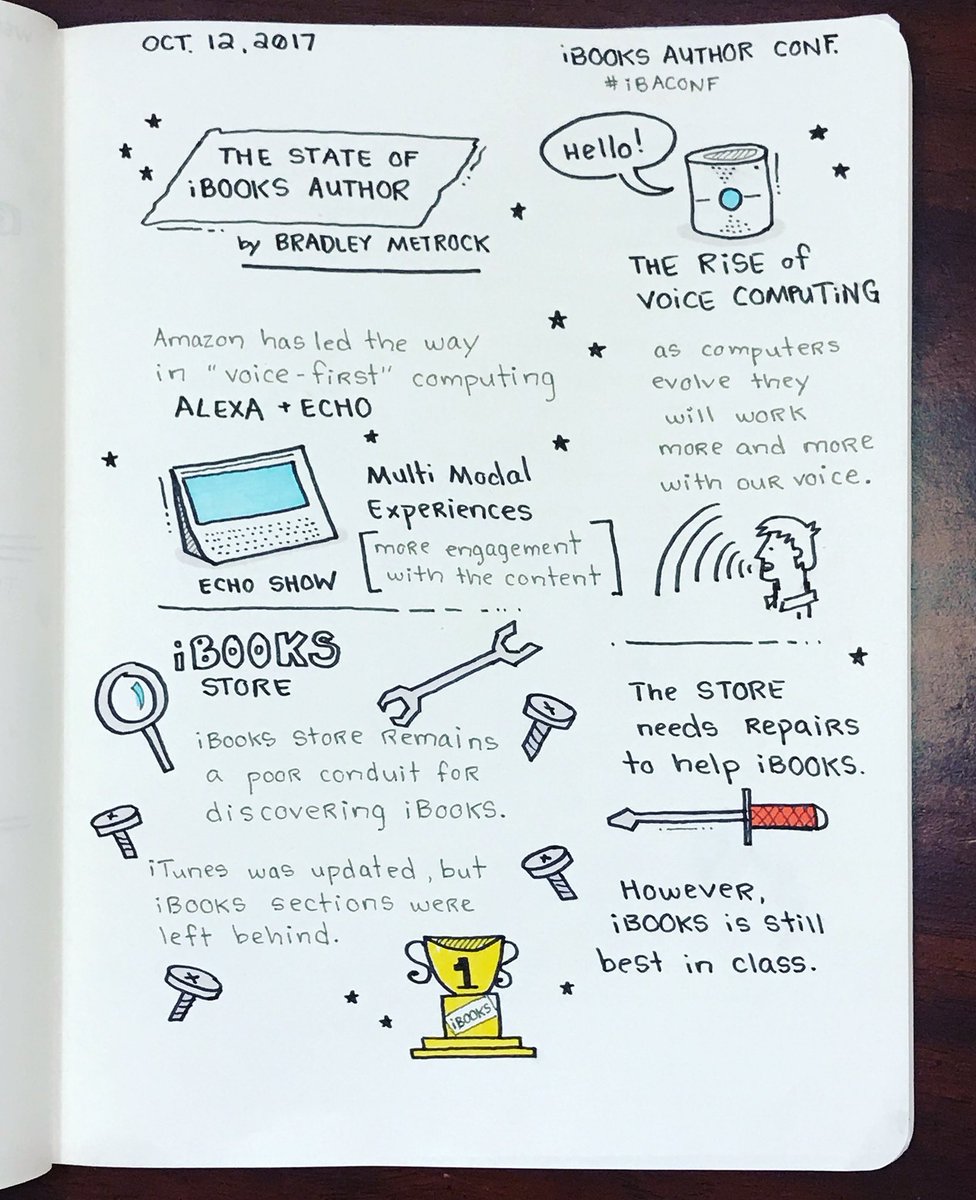 OCT. 12, 2017
iBOOKS AUTHOR CONF.
#iBACONF
THE STATE OF
iBOOKS AUTHOR
by BRADLEY METROCK
Hello!
THE RiSE of
VOiCE COMPUTiNG
Amazon has led the way
in "voice-first" computing
ALEXA + ECHO
as computers
evolve they
will work
more and more
with our voice.
Multi Modal
Experiences
more engagement
with the content
ECHO SHOW
iBOOKS
STORE
iBooks Store Remains
a poor conduit for
discovering iBooks.
iTunes was updated, but
iBooks sections were
left behind.
The STORE
needs Repairs
to help iBOOKS.
However,
iBOOKS is still
best in class.
1
iBOOKS